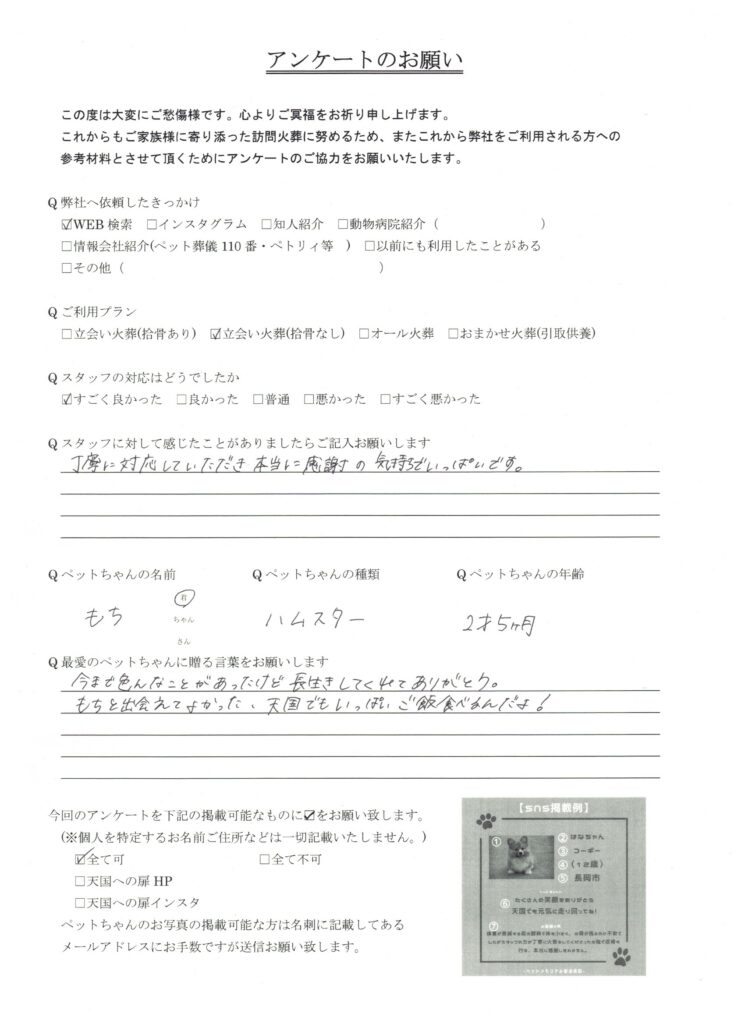 アンケートのお願い
この度は大変にご愁傷様です。心よりご冥福をお祈り申し上げます。
これからもご家族様に寄り添った訪問火葬に努めるため、またこれから弊社をご利用される方への
参考材料とさせて頂くためにアンケートのご協力をお願いいたします。
Q 弊社へ依頼したきっかけ
☑WEB 検索 □インスタグラム □知人紹介 □動物病院紹介（ ）
□情報会社紹介(ペット葬儀 110 番・ペトリィ等 ) □以前にも利用したことがある
□その他（ ）
Q ご利用プラン
□立会い火葬(拾骨あり) ☑立会い火葬(拾骨なし) □オール火葬 □おまかせ火葬(引取供養)
Q スタッフの対応はどうでしたか
☑すごく良かった □良かった □普通 □悪かった □すごく悪かった
Q スタッフに対して感じたことがありましたらご記入お願いします
丁寧に対応していただき本当に感謝の気持ちでいっぱいです。
Q ペットちゃんの名前 Q ペットちゃんの種類 Q ペットちゃんの年齢
君
もち ちゃん ハムスター 2才5ヶ月
さん
Q 最愛のペットちゃんに贈る言葉をお願いします
今まで色んなことがあったけど長生きしてくれてありがとう。
もちと出会えてよかった、天国でもいっぱいご飯食べるんだよ!
今回のアンケートを下記の掲載可能なものに☑をお願い致します。
(※個人を特定するお名前ご住所などは一切記載いたしません。)
☑全て可 □全て不可
□天国への扉 HP
□天国への扉インスタ
ペットちゃんのお写真の掲載可能な方は名刺に記載してある
メールアドレスにお手数ですが送信お願い致します。
【sns掲載例】
① ② はなちゃん
③ コーギー
④ (12歳)
⑤ 長岡市
⑥ たくさんの笑顔をありがとう
天国でも元気に走り回ってね!
⑦